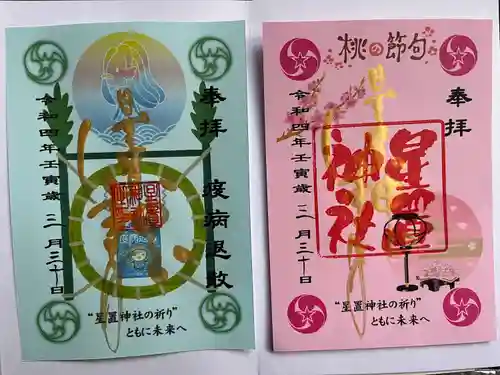 奉拝
疫病退散
令和四年壬寅歳 三月三十日
星置神社
"星置神社の祈り"
ともに未来へ
桃の節句
奉拝
星置
神社
令和四年壬寅歳 三月三十日
"星置神社の祈り"
ともに未来へ